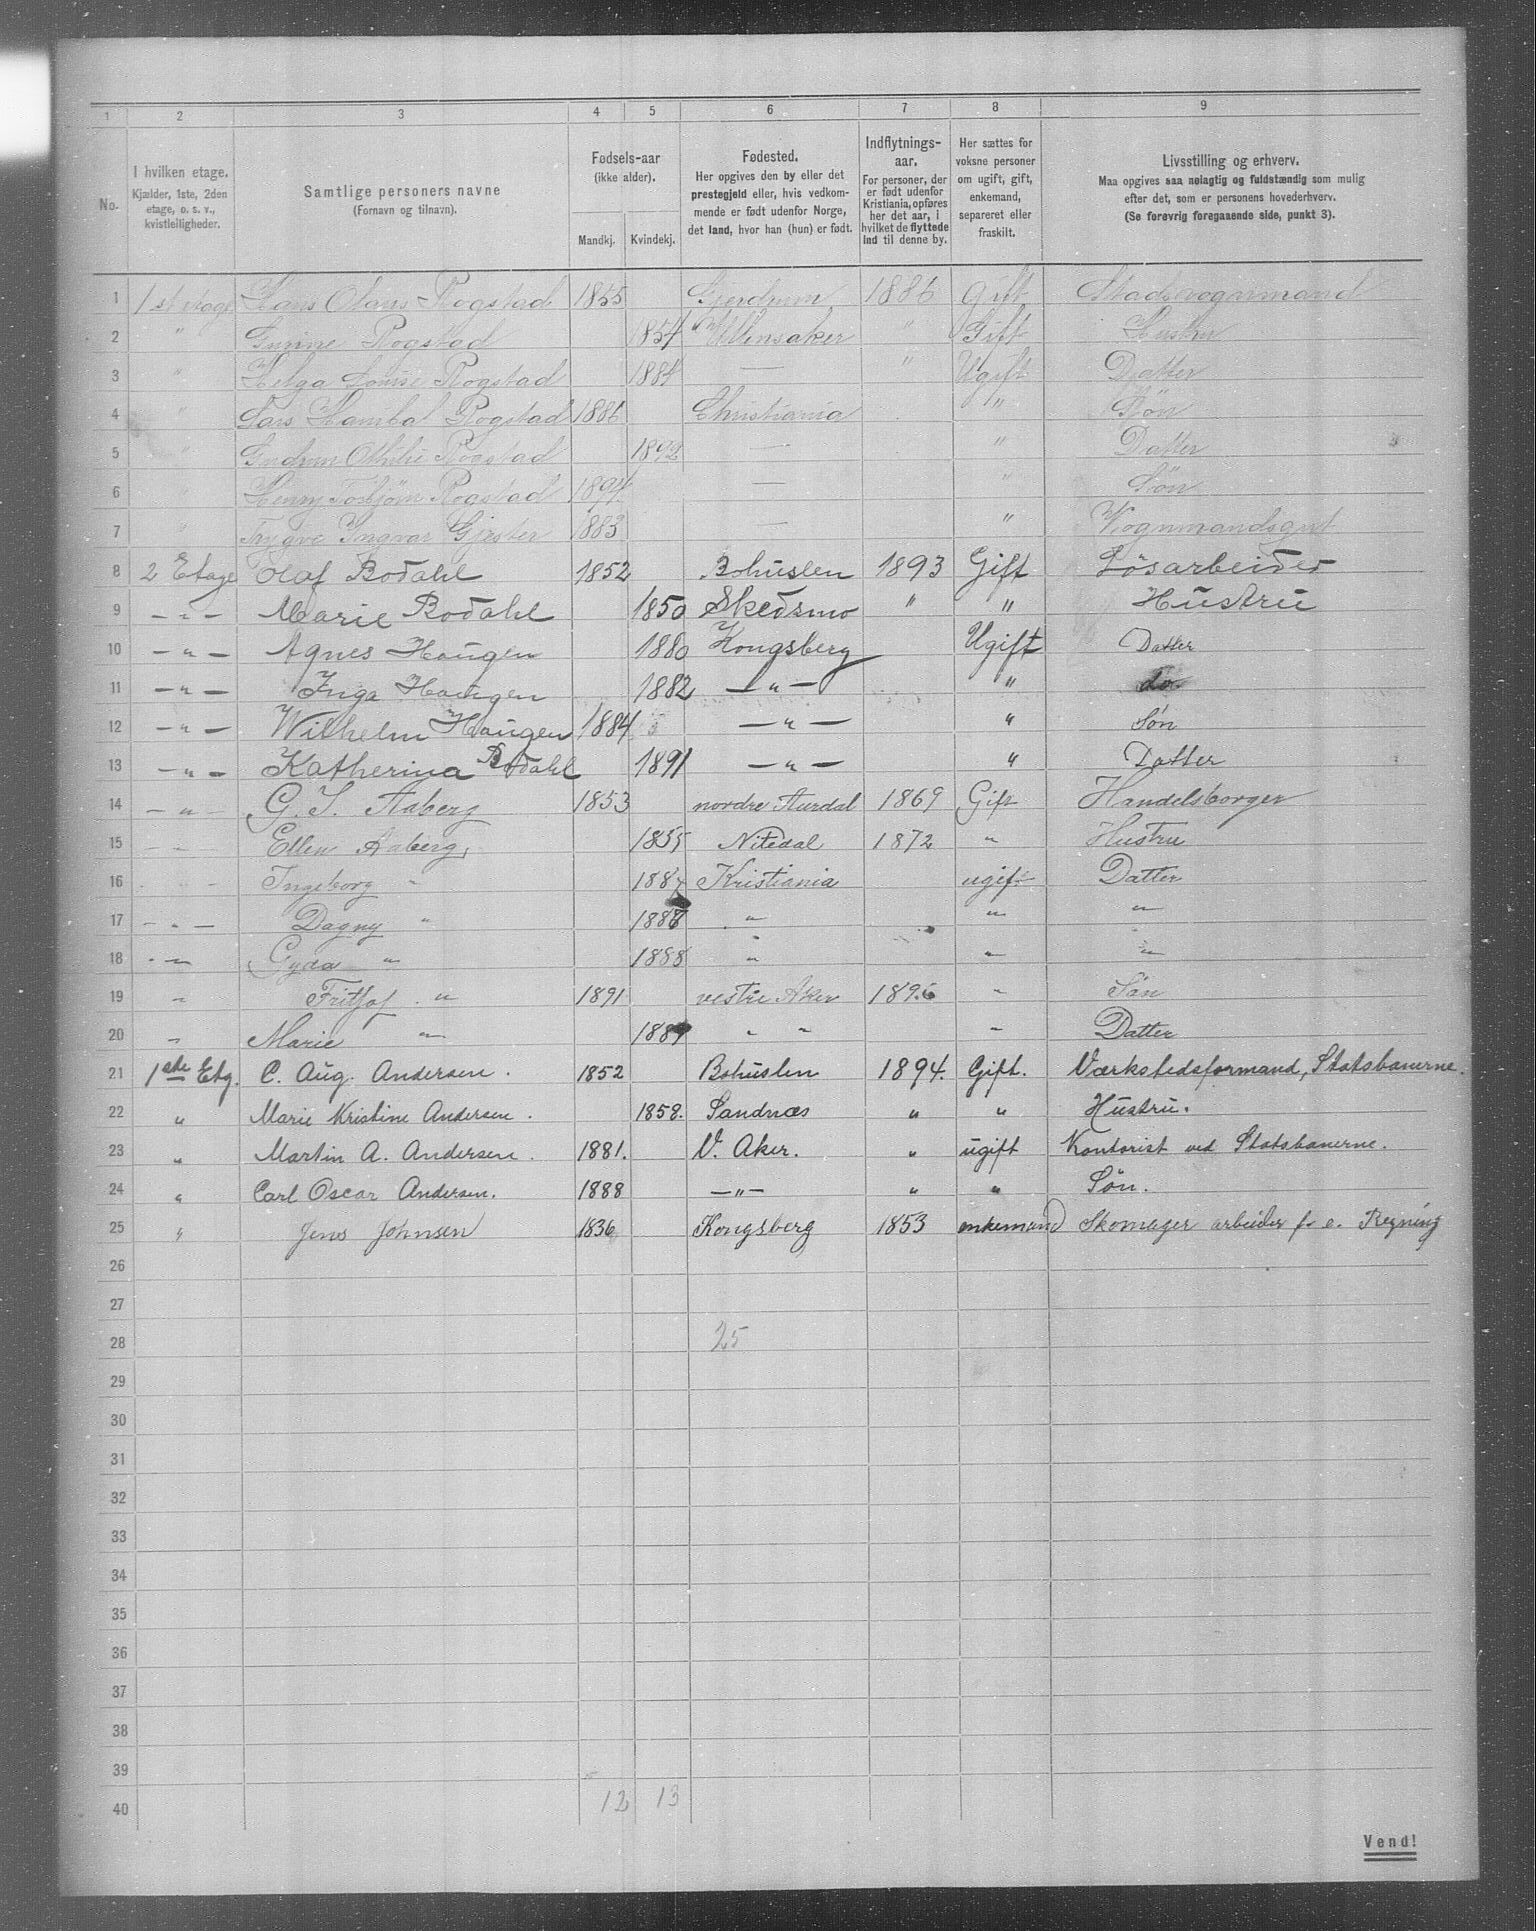 1 2 3 4 5 6 7 8 9
No. I hvilken etage. Kjælder, 1ste, 2den etage, o. s. v., kvistleiligheder. Samtlige personers navne (Fornavn og tilnavn). Fødsels-aar (ikke alder). Mandkj. Kvindekj. Fødested. Her opgives den by eller det prestegjeld eller, hvis vedkommende er født udenfor Norge, det land, hvor han (hun) er født. Indflytnings-aar. For personer, der er født udenfor Kristiania, opføres her det aar, i hvilket de flyttede ind til denne by. Her sættes for voksne personer om ugift, gift, enkemand, separeret eller fraskilt. Livsstilling og erhverv. Maa opgives saa nøiagtig og fuldstændig som mulig efter det, som er personens hovederhverv. (Se forøvrig foregaaende side, punkt 3).
1 1st etage Hans Olaus Rogstad 1855 Gjerdrum 1886 Gift Stadsvognmand
2 " Gurine Rogstad 1854 Ullensaker " Gift Hustru
3 " Helga Louise Rogstad 1884 — " Ugift Datter
4 " Lars Hambol Rogstad 1886 Christiania " Søn
5 " Gudrun Othilie Rogstad 1892 — " Datter
6 " Henry Torbjørn Rogstad 1894 — " Søn
7 " Trygve Ingvar Gjester 1883 — " Vognmandsgut
8 2 Etage Olaf Bodahl 1852 Bohuslen 1893 Gift Løsarbeider
9 — " — Marie Bodahl 1850 Skedsmo " " Hustru
10 — " — Agnes Haugen 1880 Kongsberg Ugift Datter
11 — " — Inga Haugen 1882 — " — " do
12 — " — Wilhelm Haugen 1884 — " — " Søn
13 — " — Katherina Bodahl 1891 — " — " Datter
14 — " G. I. Aaberg 1853 nordre Aurdal 1869 Gift Handelsborger
15 — " Ellen Aaberg 1855 Nitedal 1872 " Hustru
16 — " — Ingeborg " 1884 Kristiania ugift Datter
17 — " — Dagny " 1886 " " "
18 — " Gyda " 1888 " " "
19 " Fritjof " 1891 vestre Aker 1896 " Søn
20 " Marie " 1889 " " " Datter
21 1ste Etg. C. Aug. Andersen. 1852 Bohuslen 1894. Gift. Værkstedsformand, Statsbanerne.
22 " Marie Kristine Andersen. 1858. Sandnæs " " Hustru.
23 " Martin A. Andersen. 1881. V. Aker. " ugift Kontorist ved Statsbanerne.
24 " Carl Oscar Andersen. 1888 — " — " " Søn.
25 " Jens Johnsen 1836 Kongsberg 1853 enkemand Skomager arbeider f. e. Regning
26
27
28 25
29
30
31
32
33
34
35
36
37
38
39
40 12 13
Vend!